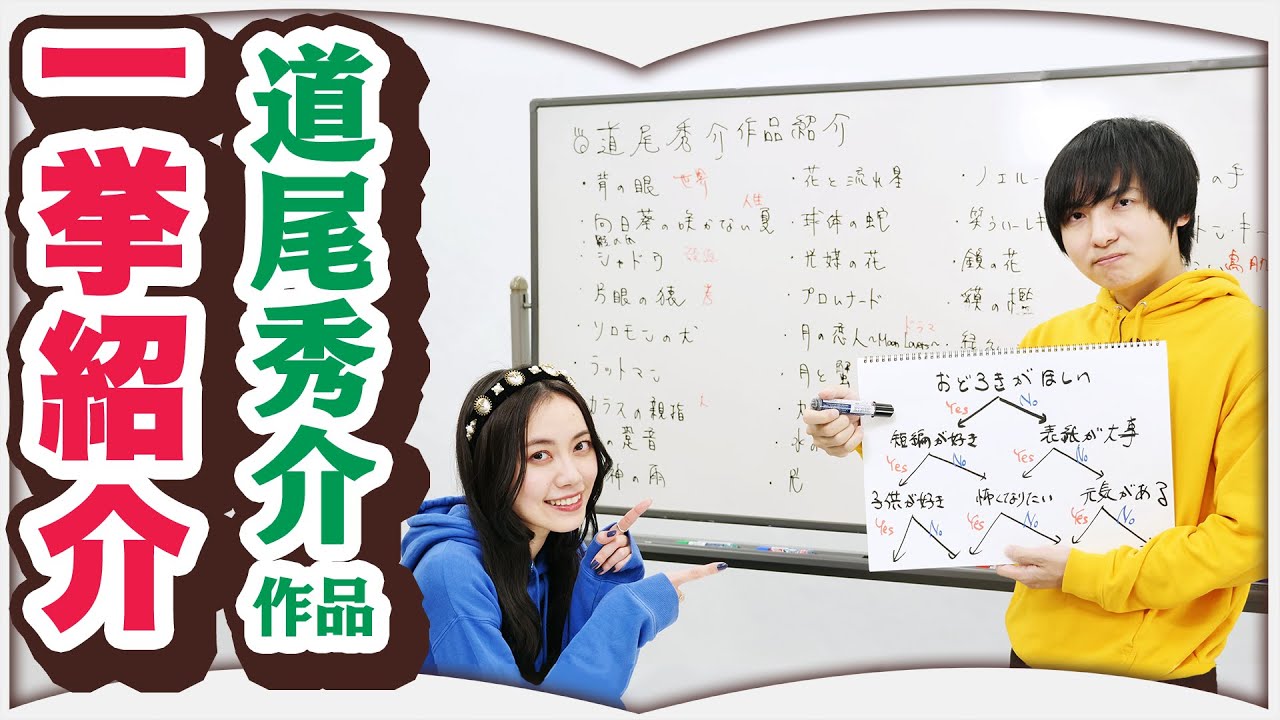 道尾秀介作品
一挙紹介
道尾秀介作品紹介
・背の眼 世界
・向日葵の咲かない夏 人生
・シャドウ
・片眼の猿
・ソロモンの犬
・ラットマン
カラスの親指
神の雨
・花と流れ星
・球体の蛇
・光媒の花
・プロムナード
・月の恋人〜Moon Lovers〜 ドラマ
・月と蟹
・光
・ノエル
・笑うハーレキ
・鏡の花
・貘の檻
の手
トン・キ
鳥肌
おどろきがほしい
Yes No
短編が好き 表紙が大事
Yes No Yes No
子供が好き 怖くなりたい 元気がある
Yes No Yes No Yes No